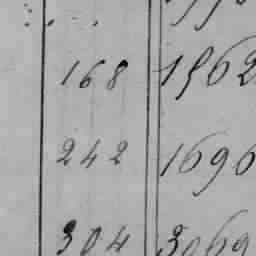 168 1562
242 1696
304 3069